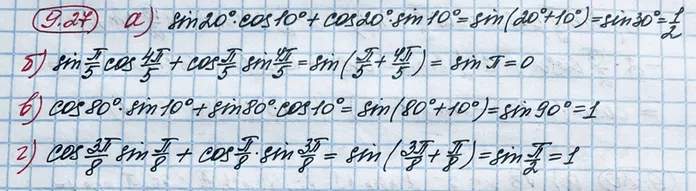 9.27 а) sin20°·cos10°+cos20°·sin10°=sin(20°+10°)=sin30°=1/2
б) sin π/5 cos 4π/5 + cos π/5 sin 4π/5 = sin(π/5 + 4π/5) = sin π = 0
в) cos80°·sin10°+sin80°·cos10°=sin(80°+10°)=sin90°=1
г) cos 3π/8 sin π/8 + cos π/8 · sin 3π/8 = sin(3π/8 + π/8) = sin π/2 = 1